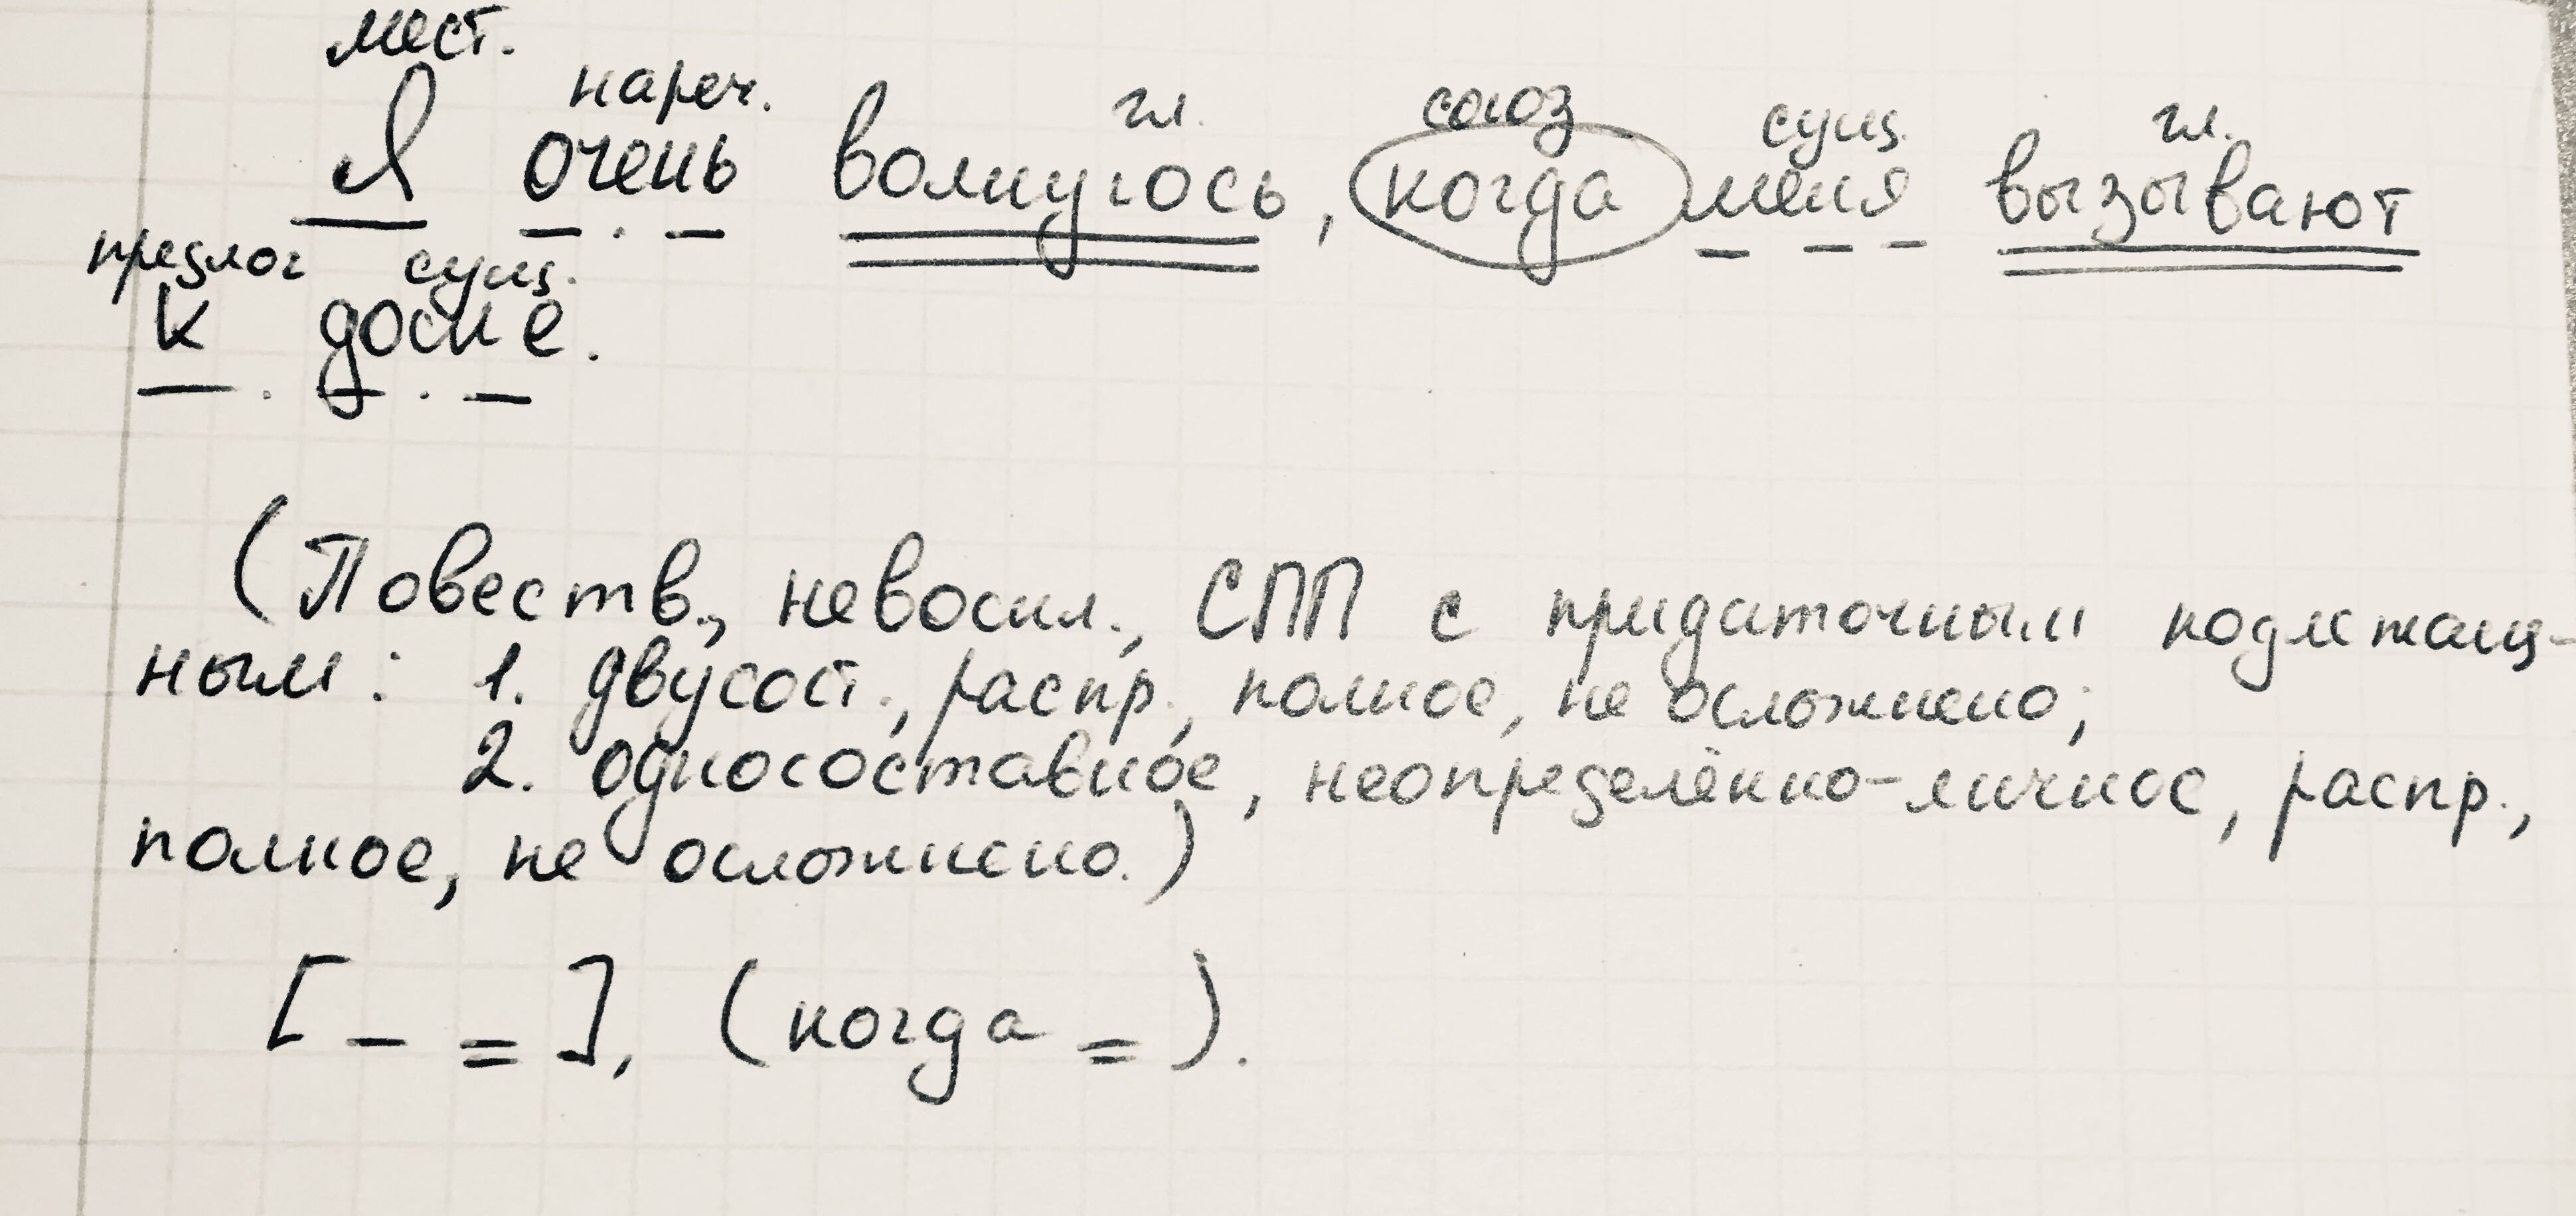 мест.
нареч. гл. союз сущ. гл.
Я очень волнуюсь, когда меня вызывают
предлог сущ.
к доске.
(Повеств., невоскл., СПП с придаточным подлежащ-
ным: 1. двусост., распр., полное, не осложнено;
2. односоставное, неопределённо-личное, распр.,
полное, не осложнено.)
[ – = ], (когда = ).